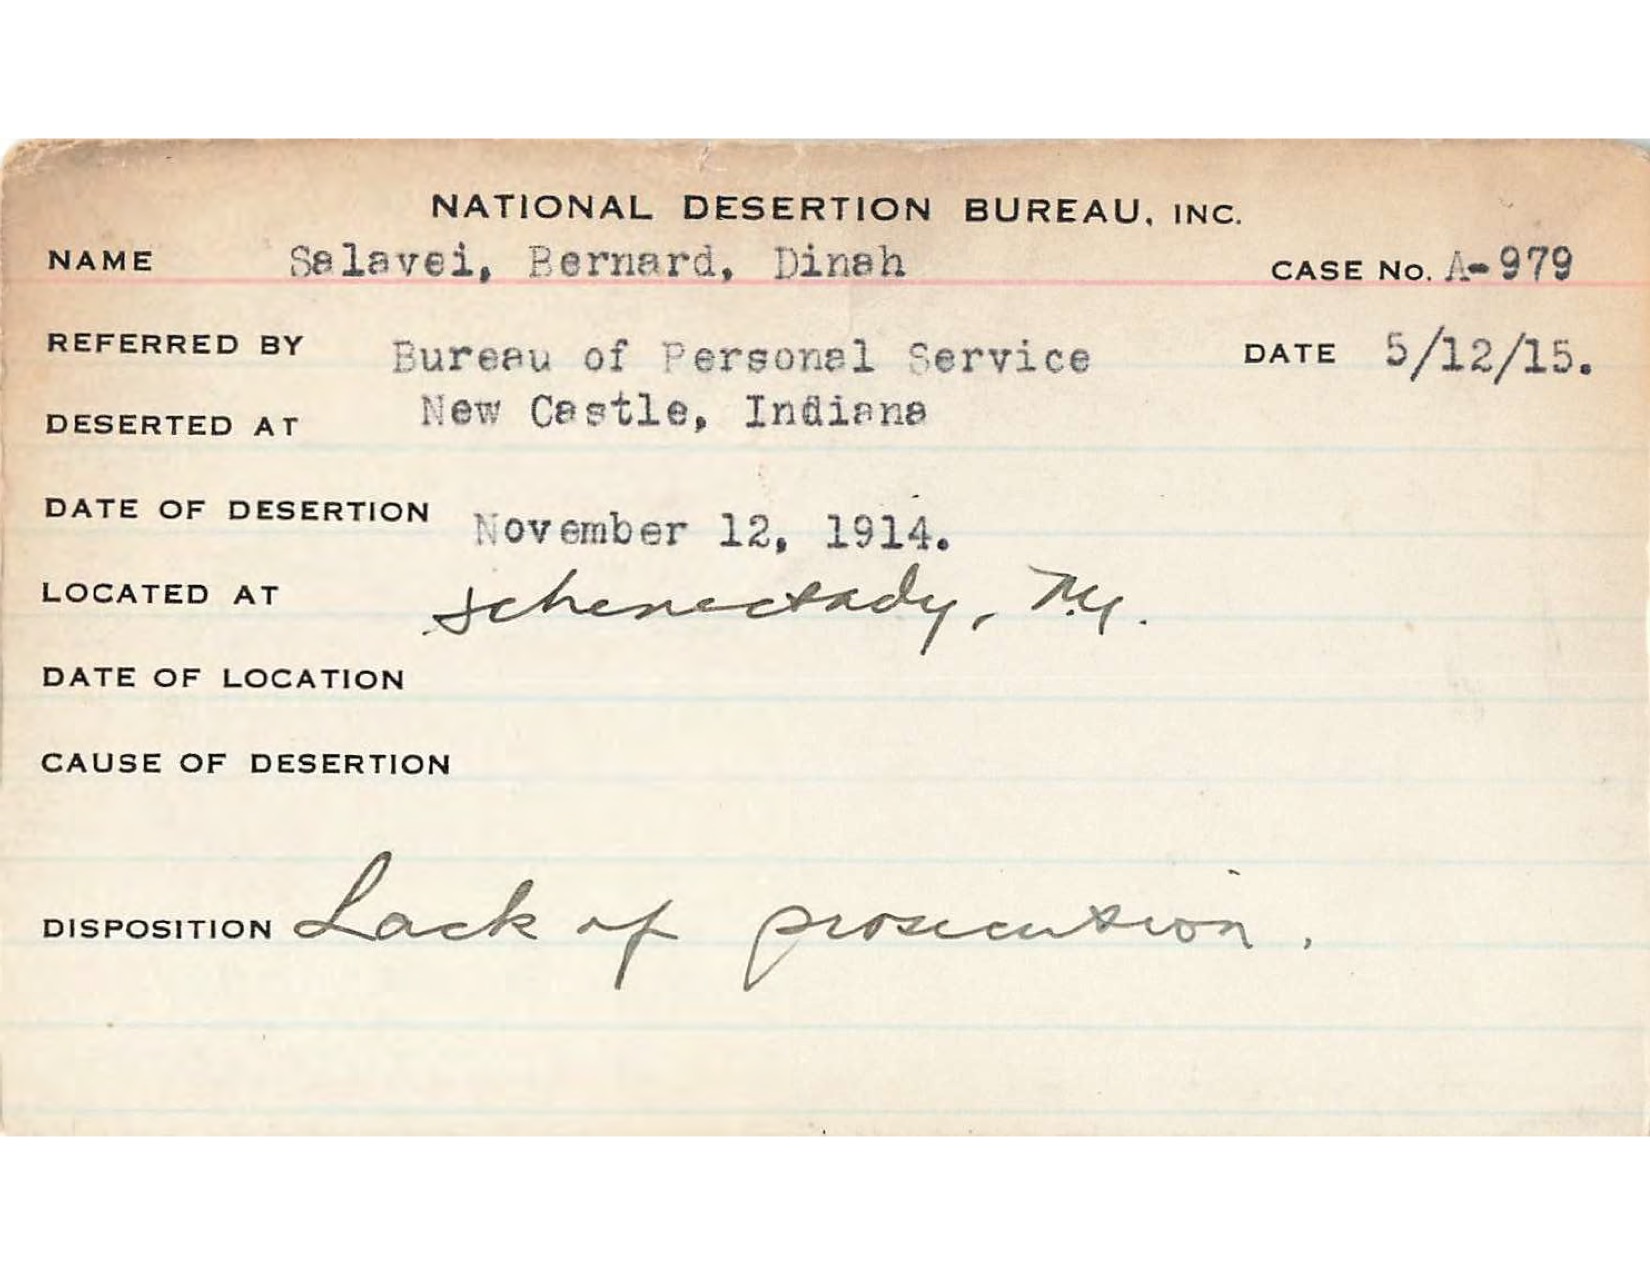 NATIONAL DESERTION BUREAU, INC.
NAME Salavei, Bernard, Dinah CASE No. A-979
REFERRED BY Bureau of Personal Service DATE 5/12/15.
DESERTED AT New Castle, Indiana
DATE OF DESERTION November 12, 1914.
LOCATED AT Schenectady, N.Y.
DATE OF LOCATION
CAUSE OF DESERTION
DISPOSITION Lack of prosecution.